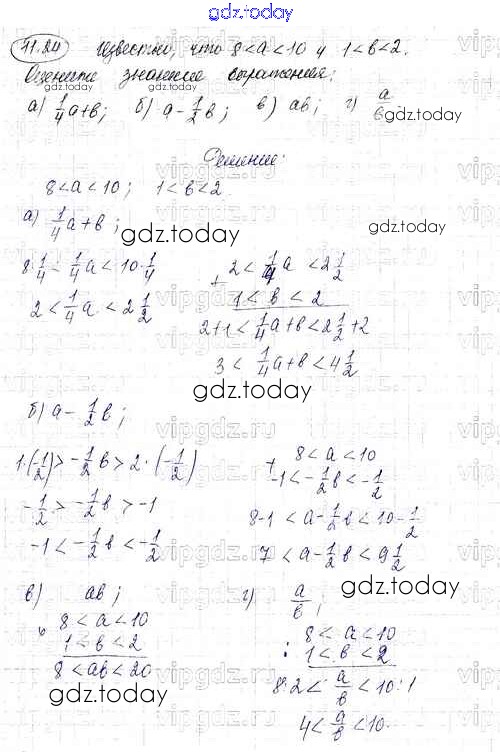 gdz.today
41.24 Известно, что 8<a<10 и 1<b<2.
Оцените значение выражения:
а) 1/4 a+b; б) a-1/2 b; в) ab; г) a/b.
gdz.today
Решение:
8<a<10; 1<b<2
а) 1/4 a+b;
gdz.today
8·1/4 < 1/4 a < 10·1/4
2 < 1/4 a < 2 1/2
+ 2 < 1/4 a < 2 1/2
1 < b < 2
2+1 < 1/4 a+b < 2 1/2 +2
3 < 1/4 a+b < 4 1/2
gdz.today
б) a - 1/2 b;
1·(-1/2) > -1/2 b > 2·(-1/2)
-1/2 > -1/2 b > -1
-1 < -1/2 b < -1/2
+ 8 < a < 10
-1 < -1/2 b < -1/2
8-1 < a - 1/2 b < 10 - 1/2
7 < a - 1/2 b < 9 1/2
в) ab;
8 < a < 10
1 < b < 2
8 < ab < 20
gdz.today
г) a/b;
gdz.today
: 8 < a < 10
1 < b < 2
8:2 < a/b < 10:1
4 < a/b < 10